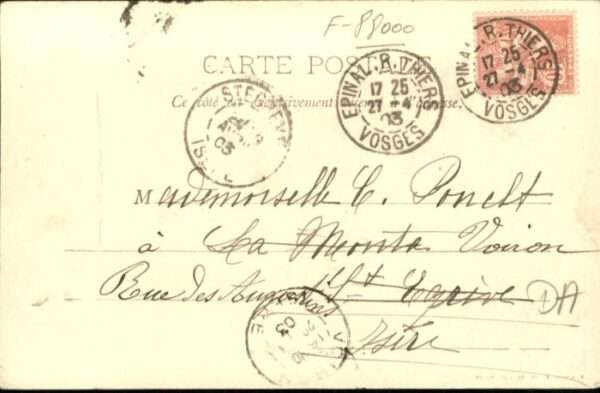 F-88000
CARTE POSTALE
Ce côté est exclusivement réservé à l'adresse.
EPINAL. R. THIERS
17 25
27 -4
03
VOSGES
EPINAL. R. THIERS
17 25
27 -4
03
VOSGES
ISÈRE
03
Mademoiselle C. Ponclt
à La Monta Voiron
Rue des Augustins St Egrève
Isère
DA
03